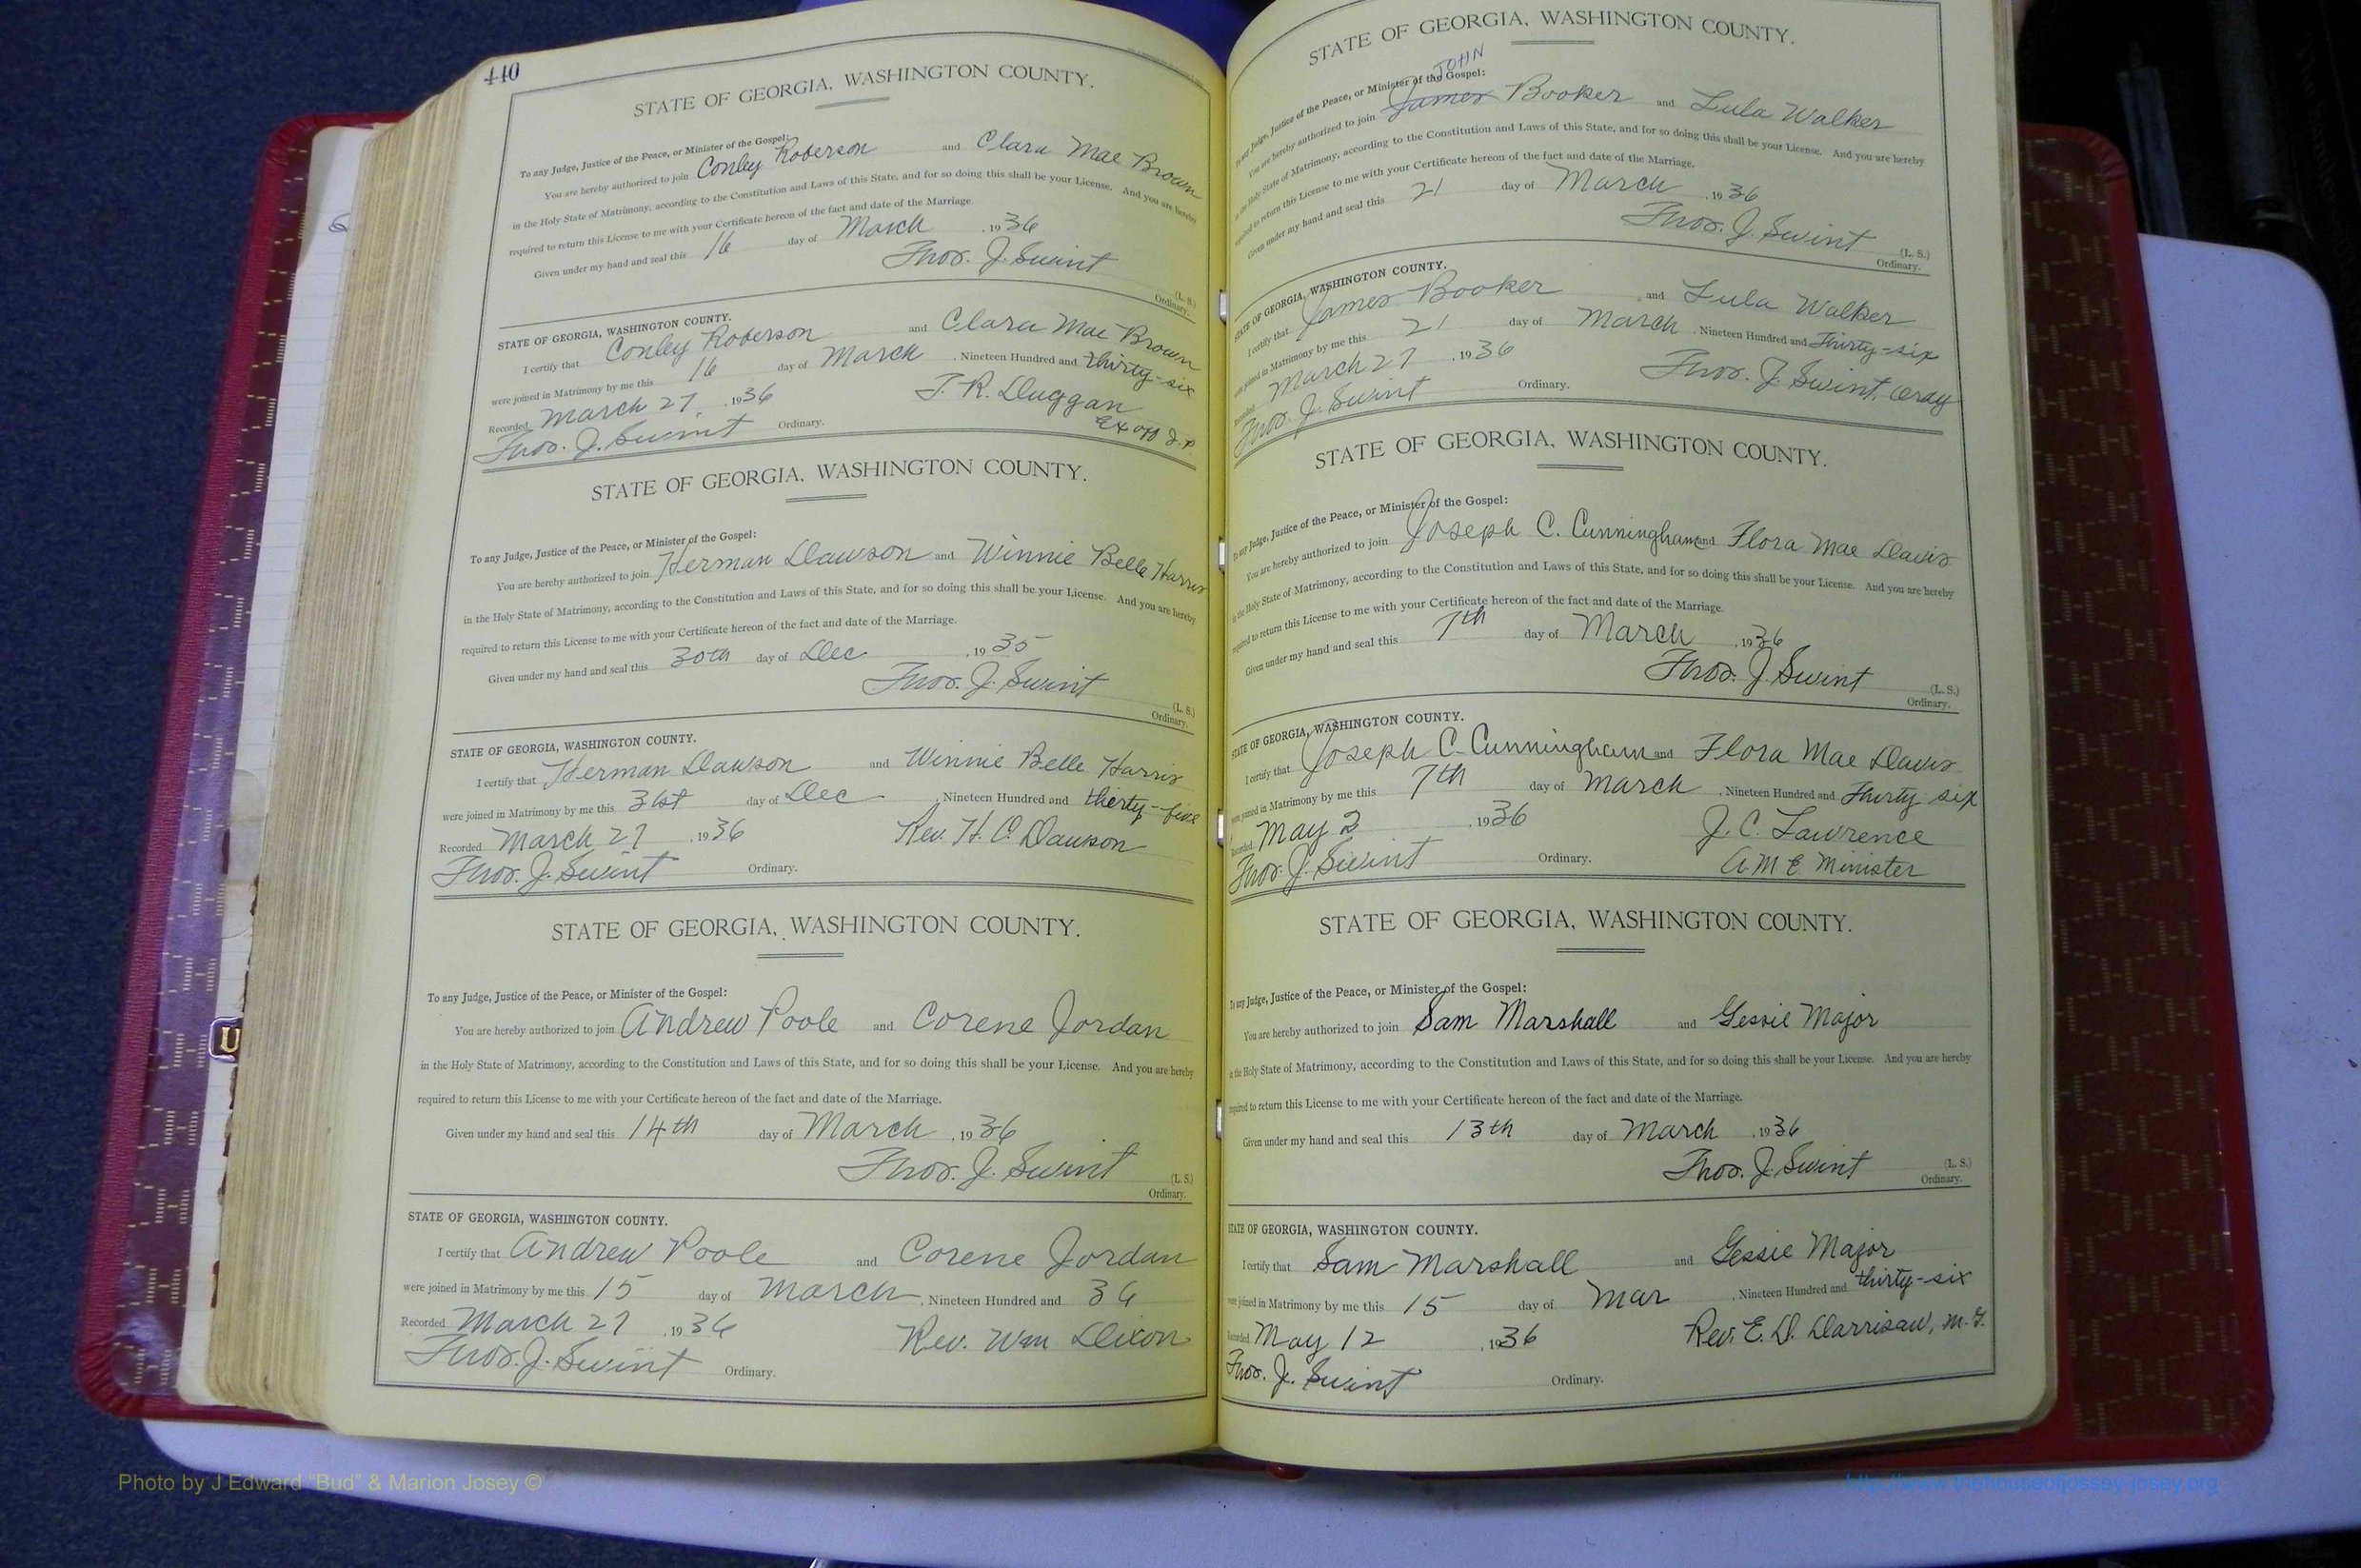 440
STATE OF GEORGIA, WASHINGTON COUNTY.
To any Judge, Justice of the Peace, or Minister of the Gospel:
You are hereby authorized to join Conley Roberson and Clara Mae Brown
in the Holy State of Matrimony, according to the Constitution and Laws of this State, and for so doing this shall be your License. And you are hereby
required to return this License to me with your Certificate hereon of the fact and date of the Marriage.
Given under my hand and seal this 16 day of March , 1936
Thos. J. Swint (L. S.)
Ordinary.
STATE OF GEORGIA, WASHINGTON COUNTY.
I certify that Conley Roberson and Clara Mae Brown
were joined in Matrimony by me this 16 day of March , Nineteen Hundred and thirty-six
Recorded March 27, , 1936 T. R. Duggan
Thos. J. Swint Ordinary. Ex off J.P.
STATE OF GEORGIA, WASHINGTON COUNTY.
To any Judge, Justice of the Peace, or Minister of the Gospel:
You are hereby authorized to join Herman Dawson and Winnie Belle Harris
in the Holy State of Matrimony, according to the Constitution and Laws of this State, and for so doing this shall be your License. And you are hereby
required to return this License to me with your Certificate hereon of the fact and date of the Marriage.
Given under my hand and seal this 30th day of Dec , 1935
Thos. J. Swint (L. S.)
Ordinary.
STATE OF GEORGIA, WASHINGTON COUNTY.
I certify that Herman Dawson and Winnie Belle Harris
were joined in Matrimony by me this 31st day of Dec , Nineteen Hundred and thirty-five
Recorded March 27 , 1936 Rev. H. C. Dawson
Thos. J. Swint Ordinary.
STATE OF GEORGIA, WASHINGTON COUNTY.
To any Judge, Justice of the Peace, or Minister of the Gospel:
You are hereby authorized to join Andrew Poole and Corene Jordan
in the Holy State of Matrimony, according to the Constitution and Laws of this State, and for so doing this shall be your License. And you are hereby
required to return this License to me with your Certificate hereon of the fact and date of the Marriage.
Given under my hand and seal this 14th day of March , 1936
Thos. J. Swint (L. S.)
Ordinary.
STATE OF GEORGIA, WASHINGTON COUNTY.
I certify that Andrew Poole and Corene Jordan
were joined in Matrimony by me this 15 day of March , Nineteen Hundred and 36
Recorded March 27 , 1936 Rev. Wm Dixon
Thos. J. Swint Ordinary.
STATE OF GEORGIA, WASHINGTON COUNTY.
JOHN
To any Judge, Justice of the Peace, or Minister of the Gospel:
You are hereby authorized to join James Booker and Lula Walker
in the Holy State of Matrimony, according to the Constitution and Laws of this State, and for so doing this shall be your License. And you are hereby
required to return this License to me with your Certificate hereon of the fact and date of the Marriage.
Given under my hand and seal this 21 day of March , 1936
Thos. J. Swint (L. S.)
Ordinary.
STATE OF GEORGIA, WASHINGTON COUNTY.
I certify that James Booker and Lula Walker
were joined in Matrimony by me this 21 day of March , Nineteen Hundred and Thirty-six
Recorded March 27 , 1936 Thos. J. Swint, Ordy
Thos. J. Swint Ordinary.
STATE OF GEORGIA, WASHINGTON COUNTY.
To any Judge, Justice of the Peace, or Minister of the Gospel:
You are hereby authorized to join Joseph C. Cunningham and Flora Mae Davis
in the Holy State of Matrimony, according to the Constitution and Laws of this State, and for so doing this shall be your License. And you are hereby
required to return this License to me with your Certificate hereon of the fact and date of the Marriage.
Given under my hand and seal this 7th day of March , 1936
Thos. J. Swint (L. S.)
Ordinary.
STATE OF GEORGIA, WASHINGTON COUNTY.
I certify that Joseph C. Cunningham and Flora Mae Davis
were joined in Matrimony by me this 7th day of March , Nineteen Hundred and Thirty six
Recorded May 2 , 1936 J. C. Lawrence
Thos. J. Swint Ordinary. A.M.E. Minister
STATE OF GEORGIA, WASHINGTON COUNTY.
To any Judge, Justice of the Peace, or Minister of the Gospel:
You are hereby authorized to join Sam Marshall and Gessie Major
in the Holy State of Matrimony, according to the Constitution and Laws of this State, and for so doing this shall be your License. And you are hereby
required to return this License to me with your Certificate hereon of the fact and date of the Marriage.
Given under my hand and seal this 13th day of March , 1936
Thos. J. Swint (L. S.)
Ordinary.
STATE OF GEORGIA, WASHINGTON COUNTY.
I certify that Sam Marshall and Gessie Major
were joined in Matrimony by me this 15 day of Mar , Nineteen Hundred and thirty-six
Recorded May 12 , 1936 Rev. E. D. Darrisaw, M.G.
Thos. J. Swint Ordinary.
U
Photo by J Edward "Bud" & Marion Josey ©
http://www.thehouseofjossey-josey.org